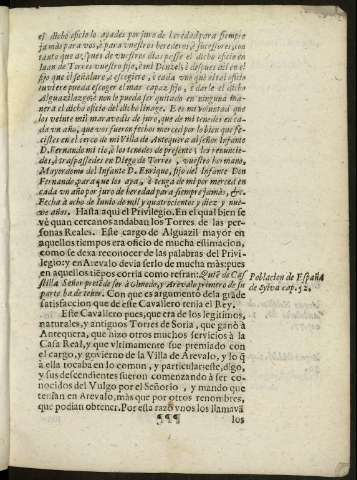 el dicho oficio lo ayades por juro de heredad para siempre
jamàs para vos, è para vuestros herederos, è sucessores, con
tanto que despues de vuestros dias passe el dicho oficio en
Juan de Torres vuestro fijo, è mi Donzel: è despues del en el
fijo que el señalare, è escogiere, è cada vno que el tal oficio
tuviere pueda escoger el mas capaz fijo, è darle el dicho
Alguazilazgo: è non le pueda ser quitado en ninguna ma-
nera el dicho oficio del dicho linage. E es mi voluntad que
los veinte mil maravedis de juro, que de mi tenedes en ca-
da vn año, que vos fueron fechos merced por lo bien que fe-
cistes en el cerco de mi Villa de Antequera al señor Infante
D. Fernando mi tio, è los tenudes de presente, los renuncie-
des, è traspassedes en Diego de Torres, vuestro hermano,
Mayordomo del Infante D. Enrique, fijo del Infante Don
Fernando, para que los aya, è tenga de mi por merced en
cada vn año por juro de heredad para siempre jamàs, &c.
Fecha à ocho de Iunio de mil y quatrocientos y diez y nue-
ve años. Hasta aqui el Privilegio. En el qual bien se
vè quan cercanos andaban los Torres de las per-
sonas Reales. Este cargo de Alguazil mayor en
aquellos tiempos era oficio de mucha estimacion,
como se dexa reconocer de las palabras del Privi-
legio: y en Arevalo devia serlo de mucha màs pues
en aquellos tiẽpos corria como refran: Quiẽ de Cas-
tilla Señor pretẽde ser à Olmedo, y Arevalo primero de su
parte ha de tener. Con que es argumento de la grãde
satisfaccion que de este Cavallero tenia el Rey.
Este Cavallero pues, que era de los legitimos,
naturales, y antiguos Torres de Soria, que ganò à
Antequera, que hizo otros muchos servicios à la
Casa Real, y que vltimamente fue premiado con
el cargo, y govierno de la Villa de Arevalo, y lo q̃
à ella tocaba en lo comun, y particular: este, digo,
y sus descendientes fueron comenzando à ser co-
nocidos del Vulgo por el Señorio, y mando que
tenian en Arevalo, màs que por otros renombres,
que podian obtener. Por esta razõ vnos los llamavã
¶¶¶ los
Poblacion de España
de Sylva cap. 52.